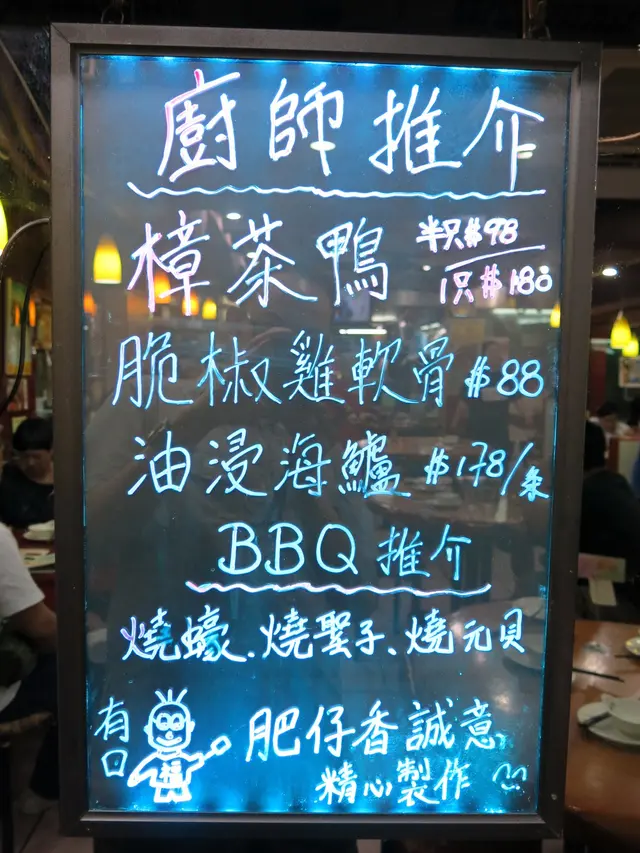 廚師推介
樟茶鴨 半只$98
1只$180
脆椒雞軟骨 $88
油浸海鱸 $178/条
BBQ 推介
燒蠔.燒聖子.燒元貝
有口福
肥仔香誠意
精心製作